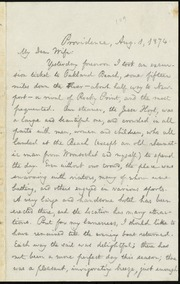 Providence, Aug. 1, 1874
My Dear Wife
Yesterday forenoon I took an excur-
sion ticket to Oakland Beach, some fifteen
miles down the River - about half way to New-
port - a rival of Rocky Point, and the most
frequented. Our steamer, the Jesse Hoyt, was
a large and beautiful one, and crowded in all
parts with men, women and children, who all
landed at the Beach (except an old
man from Pomfret and myself) to spend
the day. Even without our crowds, the place was
swarming with visitors, many of whom were
bathing, and others engaged in various sports.
A very large and handsome hotel has been
erected there, and the location has many attrac-
tions. But for my lameness, I should like to
have remained till the evening boat returned.
Each way the sail was delightful; there has
not been a more perfect day this season; there
was a pleasant, invigorating breeze, just enough